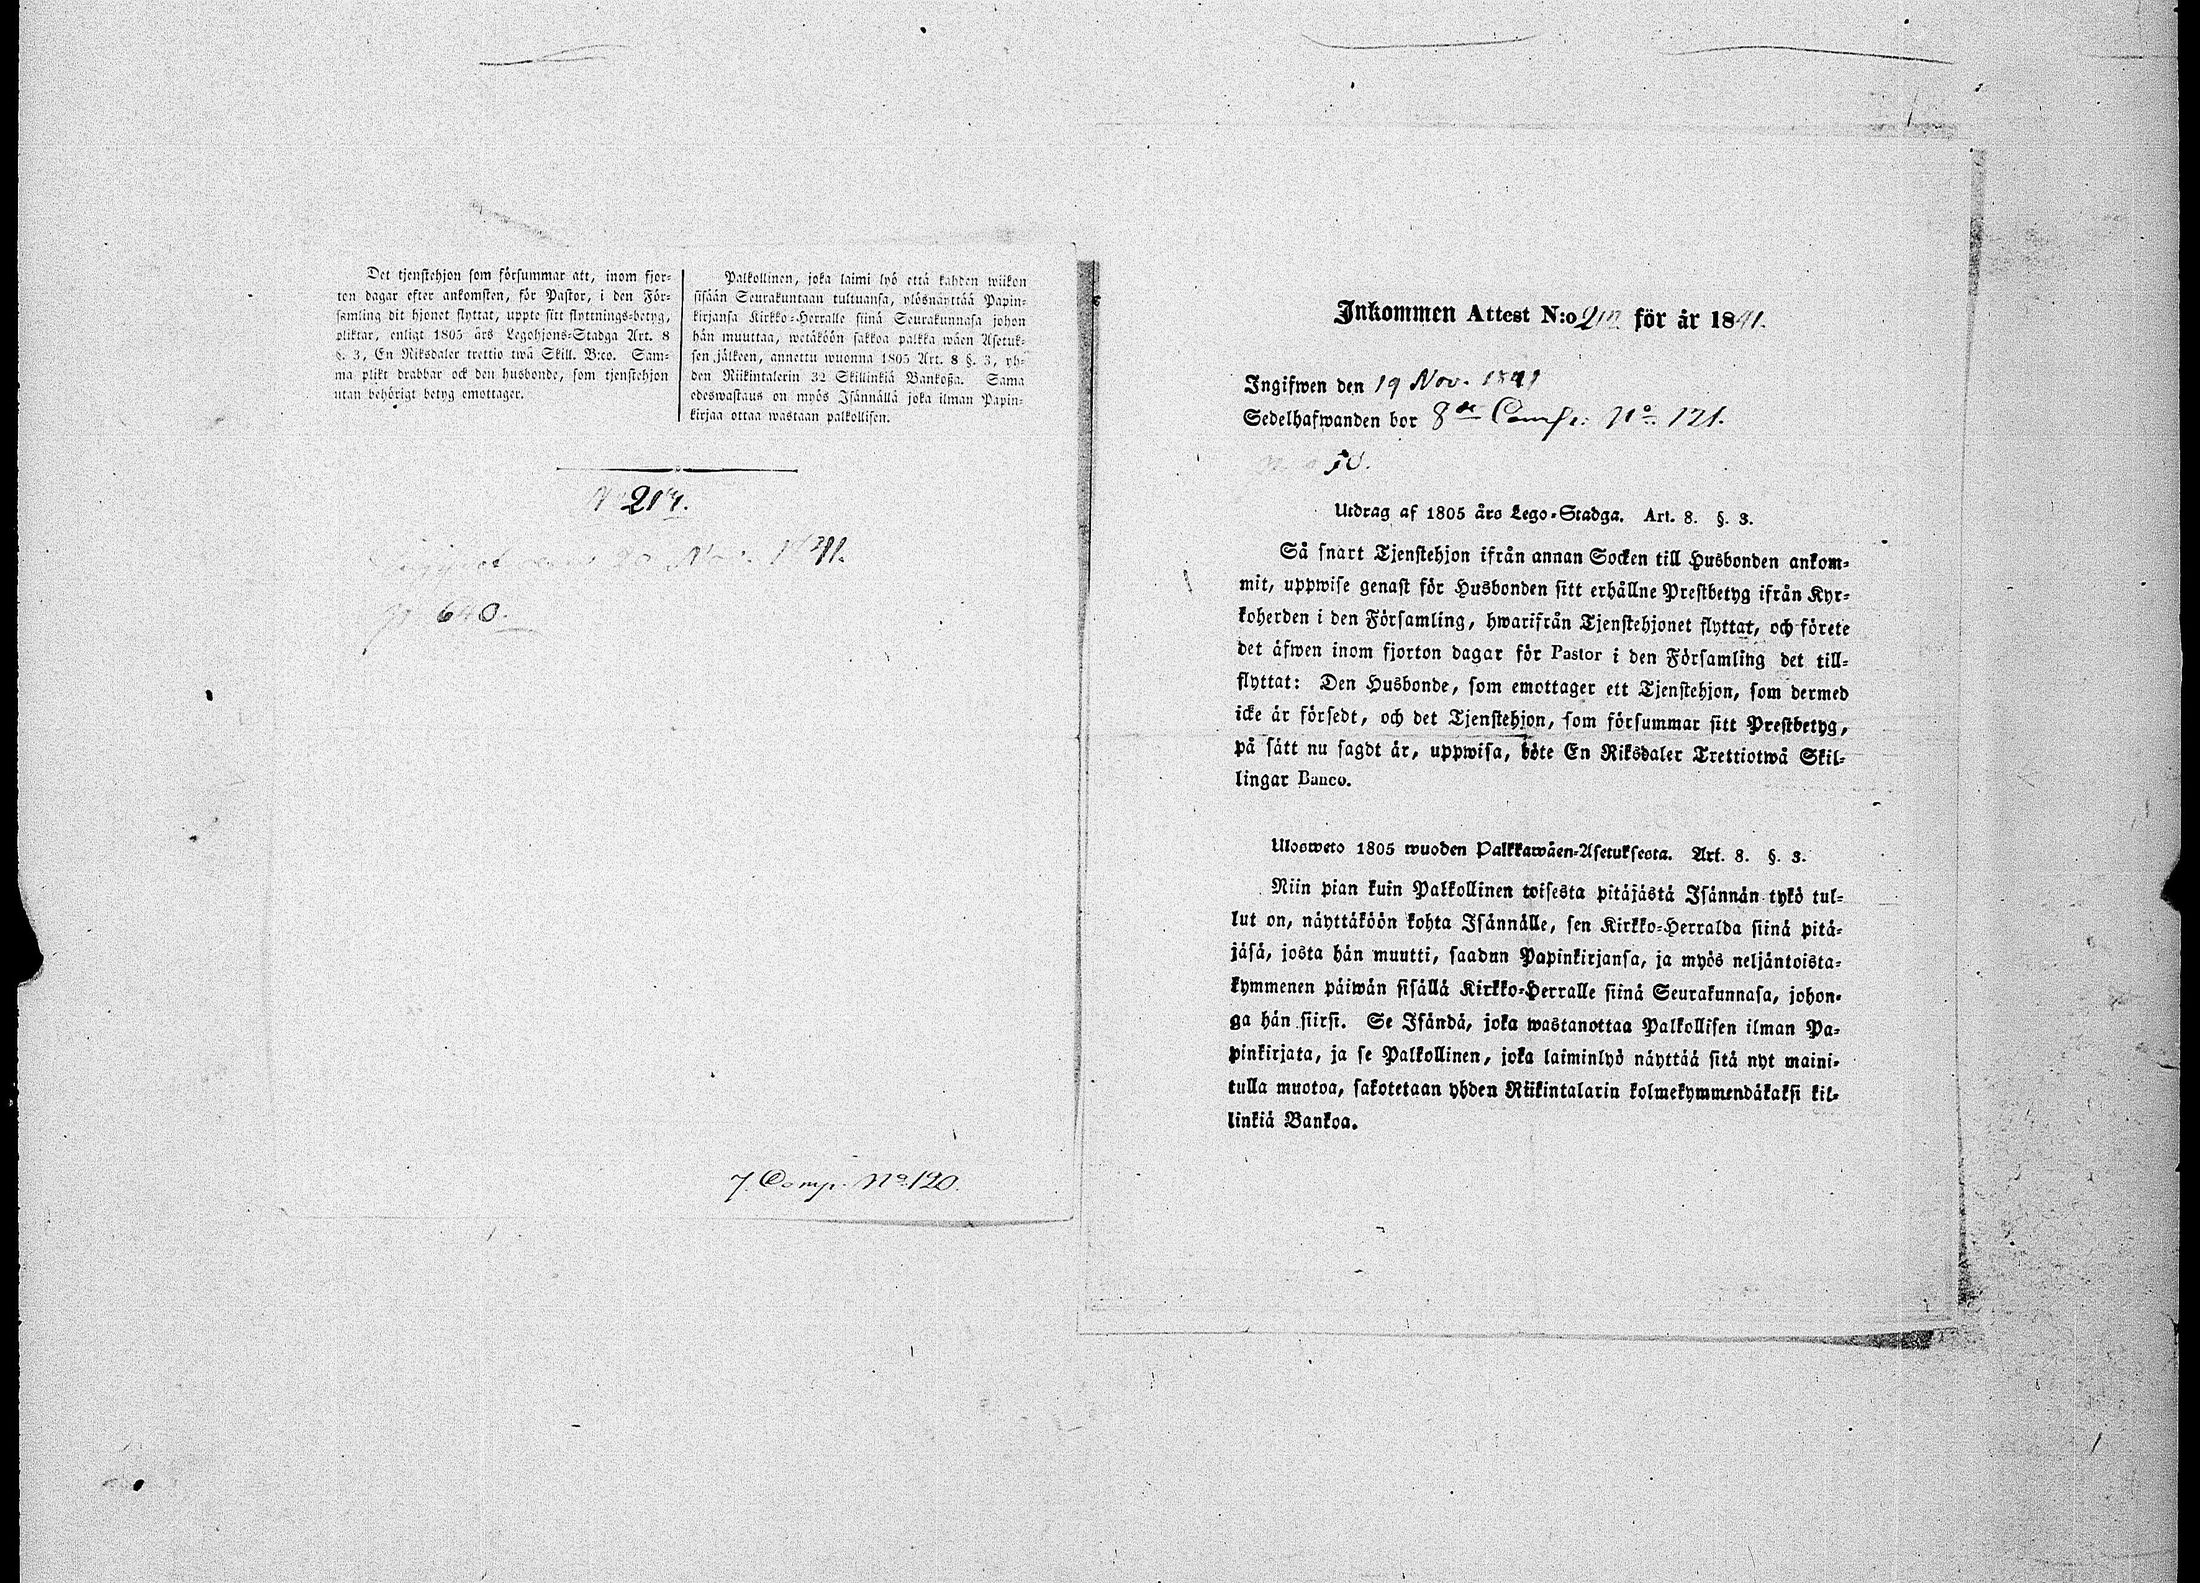 Det tjenstehjon som försummar att, inom fjor-
ton dagar efter ankomsten, för Pastor, i den För-
samling dit hjonet flyttat, uppte sitt flyttnings-betyg,
pliktar, enligt 1805 års Legohjons-Stadga Art. 8
§. 3, En Riksdaler trettio twå Skill. B:co. Sam-
ma plikt drabbar ock den husbonde, som tjenstehjon
utan behörigt betyg emottager.
Palkollinen, joka laimi lyö että kahden wiikon
sisään Seurakuntaan tultuansa, ylösnäyttää Papin-
kirjansa Kirkko-Herralle siinä Seurakunnasa johon
hän muuttaa, wetäköön sakkoa palkka wäen Asetuk-
sen jälkeen, annettu wuonna 1805 Art. 8 §. 3, yh-
den Riikintalerin 32 Skillinkiä Bankoßa. Sama
edeswastaus on myös Isännällä joka ilman Papin-
kirjaa ottaa wastaan palkollisen.
No 214.
640.
7. Comp. No 120.
Inkommen Attest N:o för år 1841.
Ingifwen den 19 Nov. 1841
Sedelhafwanden bor 8de Comp: No. 121.
50.
Utdrag af 1805 års Lego-Stadga. Art. 8. §. 3.
Så snart Tjenstehjon ifrån annan Socken till Husbonden ankom-
mit, uppwise genast för Husbonden sitt erhållne Prestbetyg ifrån Kyr-
koherden i den Församling, hwarifrån Tjenstehjonet flyttat, och förete
det äfwen inom fjorton dagar för Pastor i den Församling det till-
flyttat: Den Husbonde, som emottager ett Tjenstehjon, som dermed
icke är försedt, och det Tjenstehjon, som försummar sitt Prestbetyg,
på sätt nu sagdt är, uppwisa, böte En Riksdaler Trettiotwå Skil-
lingar Banco.
Ulosweto 1805 wuoden Palkkawäen-Asetuksesta. Art. 8. §. 3.
Niin pian kuin Palkollinen toisesta pitäjästä Isännän tykö tul-
lut on, näyttäköön kohta Isännälle, sen Kirkko-Herralda siinä pitä-
jäsä, josta hän muutti, saadun Papinkirjansa, ja myös neljäntoista-
kymmenen päiwän sisällä Kirkko-Herralle siinä Seurakunnasa, johon-
ga hän siirsi. Se Isändä, joka wastanottaa Palkollisen ilman Pa-
pinkirjata, ja se Palkollinen, joka laiminlyö näyttää sitä nyt maini-
tulla muotoa, sakotetaan yhden Riikintalarin kolmekymmendäkaksi kil-
linkiä Bankoa.